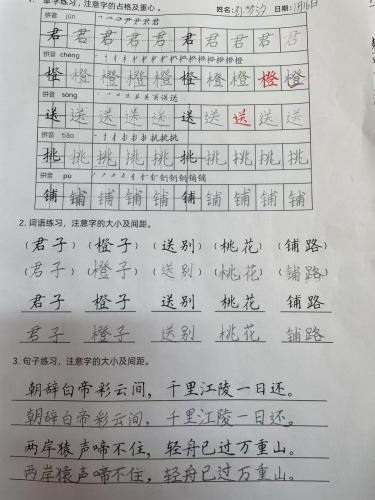 单字练习，注意字的占格及重心。 姓名： 日期：1月16日
拼音 jūn
君 君 君 君 君 君 君 君 君
拼音 chéng
橙 橙 橙 橙 橙 橙 橙 橙 橙 橙
拼音 sòng
送 送 送 送 送 送 送 送 送
拼音 tiāo
挑 挑 挑 挑 挑 挑 挑 挑 挑
拼音 pu
铺 铺 铺 铺 铺 铺 铺 铺 铺
2. 词语练习，注意字的大小及间距。
（君子）（橙子）（送别）（桃花）（铺路）
（君子）（橙子）（送别）（桃花）（铺路）
君子 橙子 送别 桃花 铺路
君子 橙子 送别 桃花 铺路
3. 句子练习，注意字的大小及间距。
朝辞白帝彩云间，千里江陵一日还。
朝辞白帝彩云间，千里江陵一日还。
两岸猿声啼不住，轻舟已过万重山。
两岸猿声啼不住，轻舟已过万重山。